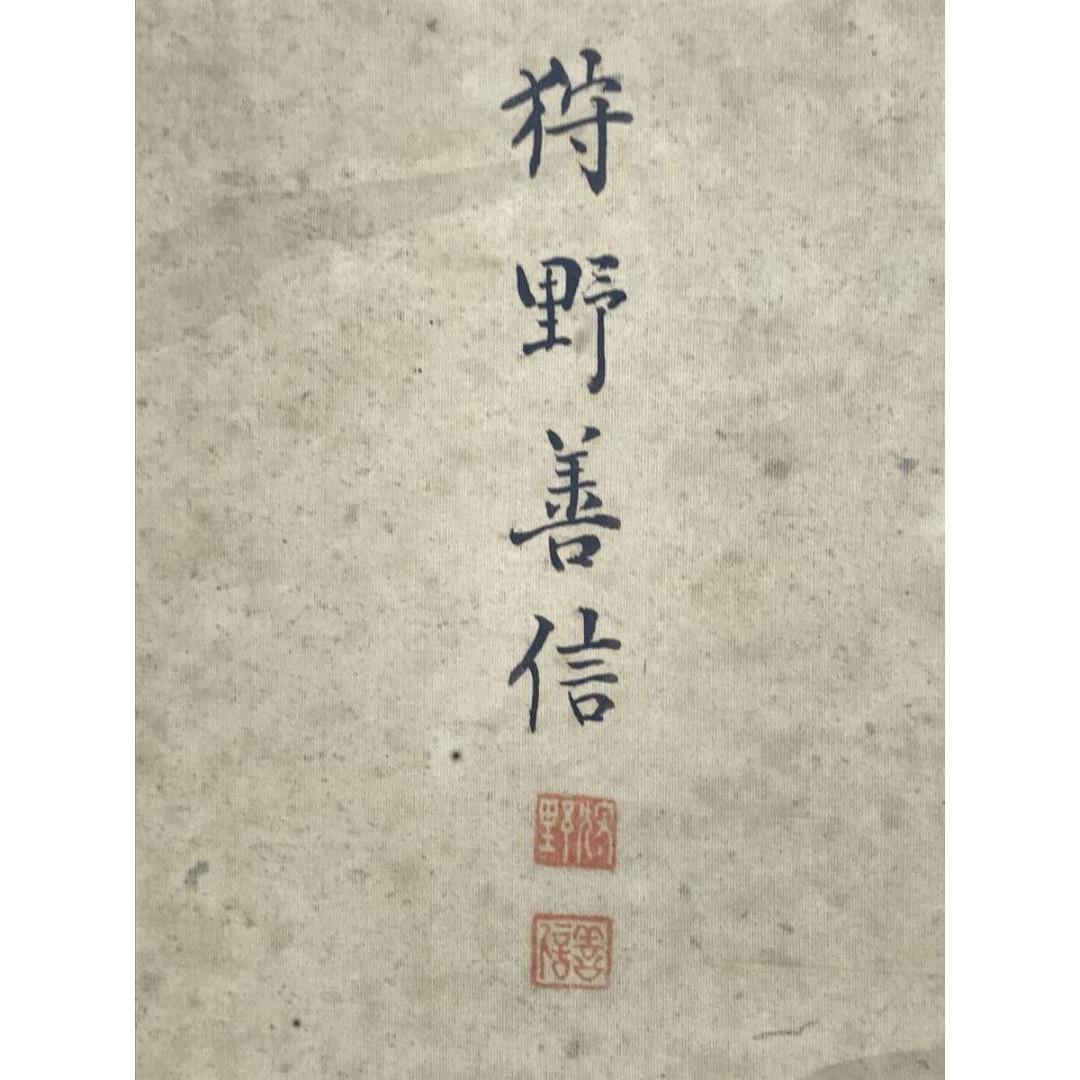 狩野善信
狩野
善信